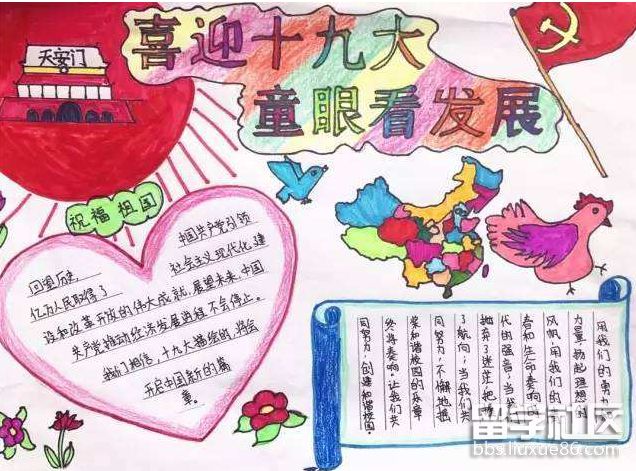 天安门
喜迎十九大
童眼看发展
祝福祖国
回望历史,中国共产党引领
亿万人民取得了社会主义现代化建
设和改革开放的伟大成就,展望未来,中国
共产党推动经济发展进程不会停止。
我们相信,十九大描绘的,将会
开启中国新的篇
章。
用我们的勇
力量,扬起理想的
风帆,用我们的
者和生命奏响时
代的强音,当我
抛弃了迷茫,把
了航向,当我们共
同努力,不懈地摇
桨和谐校园的乐章
终将奏响。让我们共
同努力,创建和谐校园。
留学社区
bbs.liuxue86.com